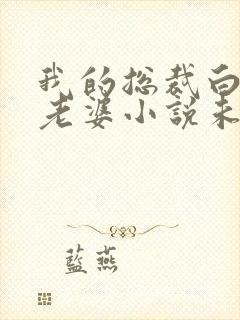 我的總裁白
老婆小說未
藍燕